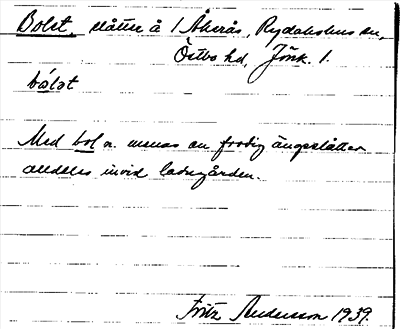 Bolet, slåtter å 1 Åkerås, Rydaholms sn,
Östbo hd, Jönk. l.
bólət
Med bol n. menas en frodig ängsslätter
alldeles invid ladugården.
Fritz Andersson 1939.